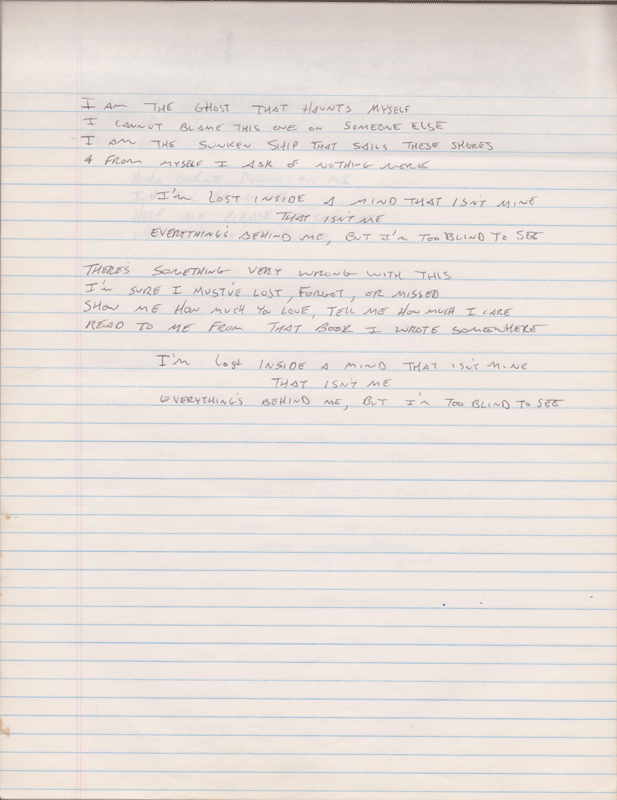 I AM THE GHOST THAT HAUNTS MYSELF
I CANNOT BLAME THIS ONE ON SOMEONE ELSE
I AM THE SUNKEN SHIP THAT SAILS THESE SHORES
& FROM MYSELF I ASK OF NOTHING MORE
I'M LOST INSIDE A MIND THAT ISN'T MINE
THAT ISN'T ME
EVERYTHING'S BEHIND ME, BUT I'M TOO BLIND TO SEE
THERE'S SOMETHING VERY WRONG WITH THIS
I'M SURE I MUST'VE LOST, FORGOT, OR MISSED
SHOW ME HOW MUCH YOU LOVE, TELL ME HOW MUCH I CARE
READ TO ME FROM THAT BOOK I WROTE SOMEWHERE
I'M LOST INSIDE A MIND THAT ISN'T MINE
THAT ISN'T ME
EVERYTHING'S BEHIND ME, BUT I'M TOO BLIND TO SEE